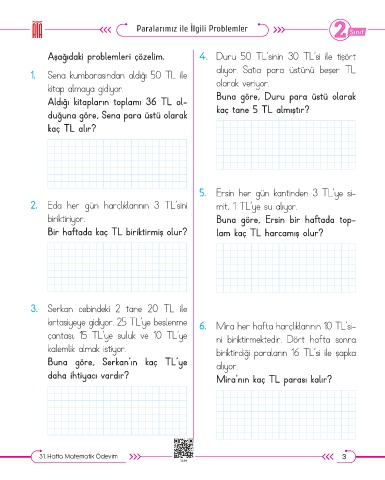 Paralarımız ile İlgili Problemler
2. Sınıf
Aşağıdaki problemleri çözelim.
1. Sena kumbarasından aldığı 50 TL ile
kitap almaya gidiyor.
Aldığı kitapların toplamı 36 TL ol-
duğuna göre, Sena para üstü olarak
kaç TL alır?
2. Eda her gün harçlıklarının 3 TL'sini
biriktiriyor.
Bir haftada kaç TL biriktirmiş olur?
3. Serkan cebindeki 2 tane 20 TL ile
kırtasiyeye gidiyor. 25 TL'ye beslenme
çantası, 15 TL'ye suluk ve 10 TL'ye
kalemlik almak istiyor.
Buna göre, Serkan'ın kaç TL'ye
daha ihtiyacı vardır?
4. Duru 50 TL'sinin 30 TL'si ile tişört
alıyor. Satıcı para üstünü beşer TL
olarak veriyor.
Buna göre, Duru para üstü olarak
kaç tane 5 TL almıştır?
5. Ersin her gün kantinden 3 TL'ye si-
mit, 1 TL'ye su alıyor.
Buna göre, Ersin bir haftada top-
lam kaç TL harcamış olur?
6. Mira her hafta harçlıklarının 10 TL'si-
ni biriktirmektedir. Dört hafta sonra
biriktirdiği paraların 16 TL'si ile şapka
alıyor.
Mira'nın kaç TL parası kalır?
31. Hafta Matematik Ödevim
3